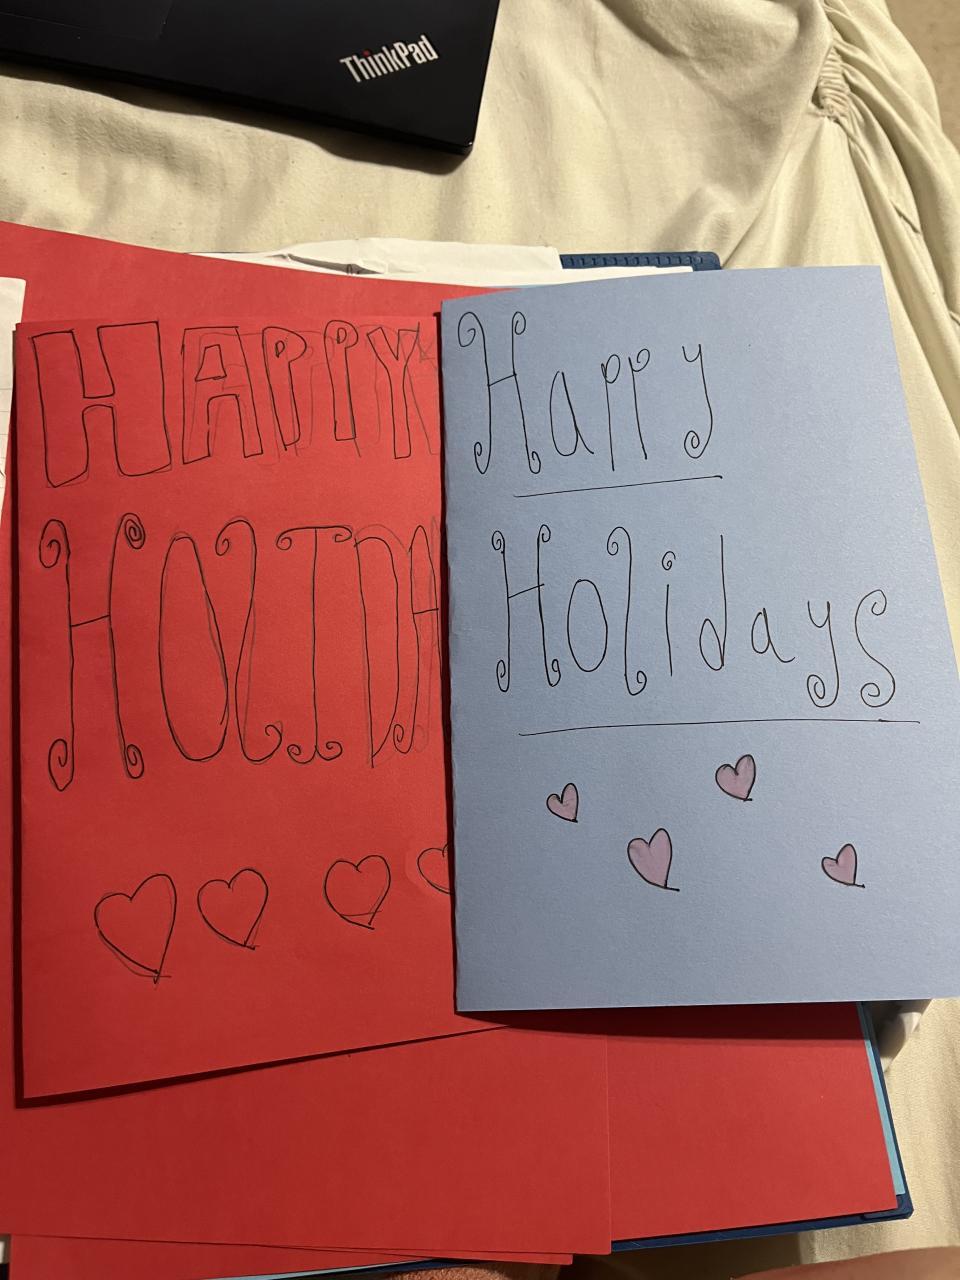 ThinkPad
HAPPY
HOLIDA
Happy
Holidays